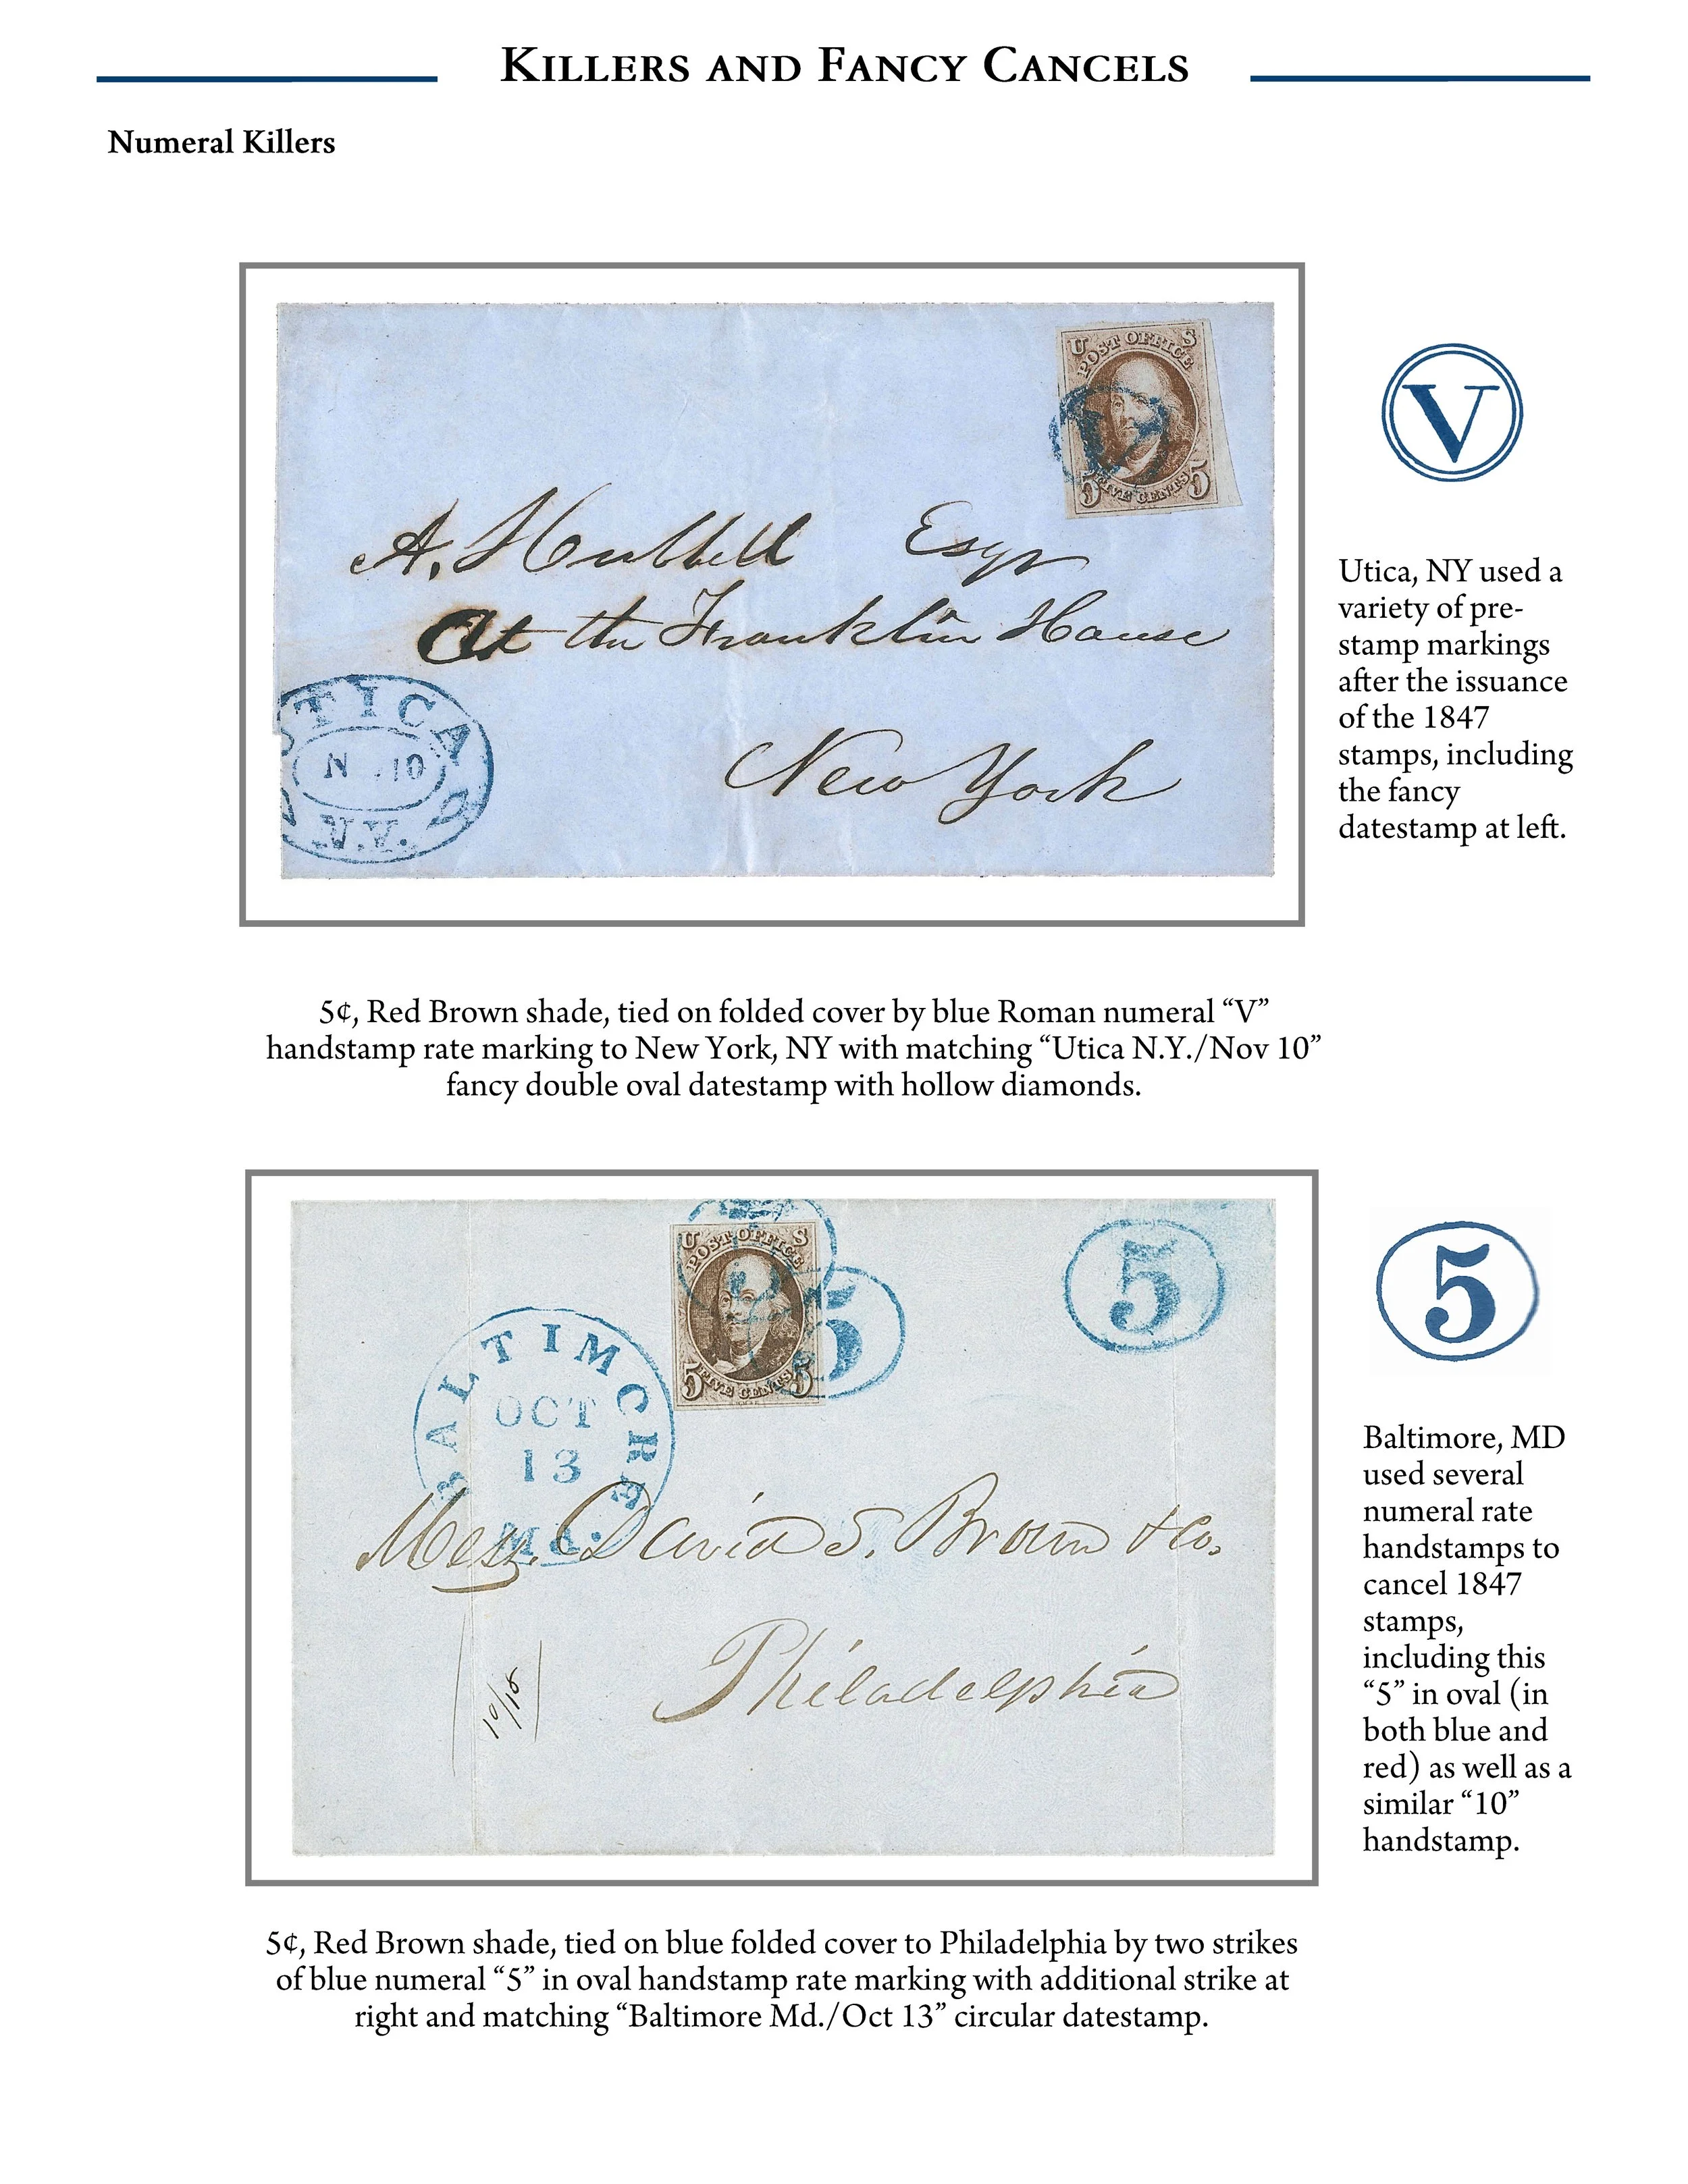 KILLERS AND FANCY CANCELS
Numeral Killers
U S
POST OFFICE
5 FIVE CENTS 5
A. Hubbell Esqr
At the Franklin House
New York
UTICA
N .10
N.Y.
V
Utica, NY used a
variety of pre-
stamp markings
after the issuance
of the 1847
stamps, including
the fancy
datestamp at left.
5¢, Red Brown shade, tied on folded cover by blue Roman numeral “V”
handstamp rate marking to New York, NY with matching “Utica N.Y./Nov 10”
fancy double oval datestamp with hollow diamonds.
U S
POST OFFICE
5 FIVE CENTS 5
5
5
BALTIMORE
OCT
13
Md.
Mess. David S. Brown & Co.
Philadelphia
10/15
5
Baltimore, MD
used several
numeral rate
handstamps to
cancel 1847
stamps,
including this
“5” in oval (in
both blue and
red) as well as a
similar “10”
handstamp.
5¢, Red Brown shade, tied on blue folded cover to Philadelphia by two strikes
of blue numeral “5” in oval handstamp rate marking with additional strike at
right and matching “Baltimore Md./Oct 13” circular datestamp.